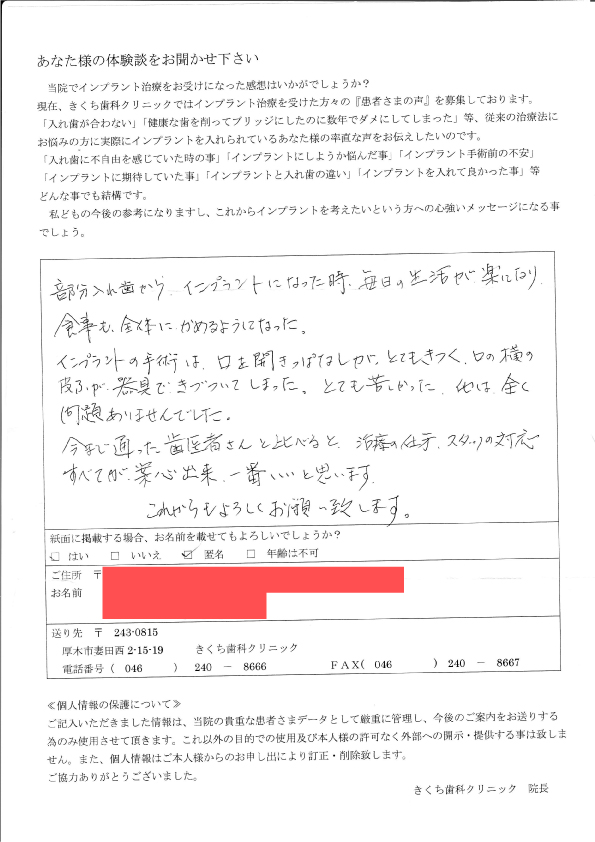 あなた様の体験談をお聞かせ下さい
当院でインプラント治療をお受けになった感想はいかがでしょうか？
現在、きくち歯科クリニックではインプラント治療を受けた方々の『患者さまの声』を募集しております。
「入れ歯が合わない」「健康な歯を削ってブリッジにしたのに数年でダメにしてしまった」等、従来の治療法に
お悩みの方に実際にインプラントを入れられているあなた様の率直な声をお伝えしたいのです。
「入れ歯に不自由を感じていた時の事」「インプラントにしようか悩んだ事」「インプラント手術前の不安」
「インプラントに期待していた事」「インプラントと入れ歯の違い」「インプラントを入れて良かった事」等
どんな事でも結構です。
私どもの今後の参考になりますし、これからインプラントを考えたいという方への心強いメッセージになる事
でしょう。
部分入れ歯から、インプラントになった時、毎日の生活が楽になり、
食事も、全体にかめるようになった。
インプラントの手術は、口を開きっぱなしが、とてもきつく、口の横の
皮ふが、器具できづついてしまった。とても苦しかった、他は、全く
問題ありませんでした。
今まで通った歯医者さんと比べると、治療の仕方、スタッフの対応
すべてが安心出来、一番いいと思います。
これからもよろしくお願い致します。
紙面に掲載する場合、お名前を載せてもよろしいでしょうか？
□ はい □ いいえ ☑ 匿名 □ 年齢は不可
ご住所 〒
お名前
送り先 〒 243-0815
厚木市妻田西 2-15-19 きくち歯科クリニック
電話番号（ 046 ） 240 － 8666 FAX（ 046 ） 240 － 8667
≪個人情報の保護について≫
ご記入いただきました情報は、当院の貴重な患者さまデータとして厳重に管理し、今後のご案内をお送りする
為のみ使用させて頂きます。これ以外の目的での使用及び本人様の許可なく外部への開示・提供する事は致しま
せん。また、個人情報はご本人様からのお申し出により訂正・削除致します。
ご協力ありがとうございました。
きくち歯科クリニック 院長